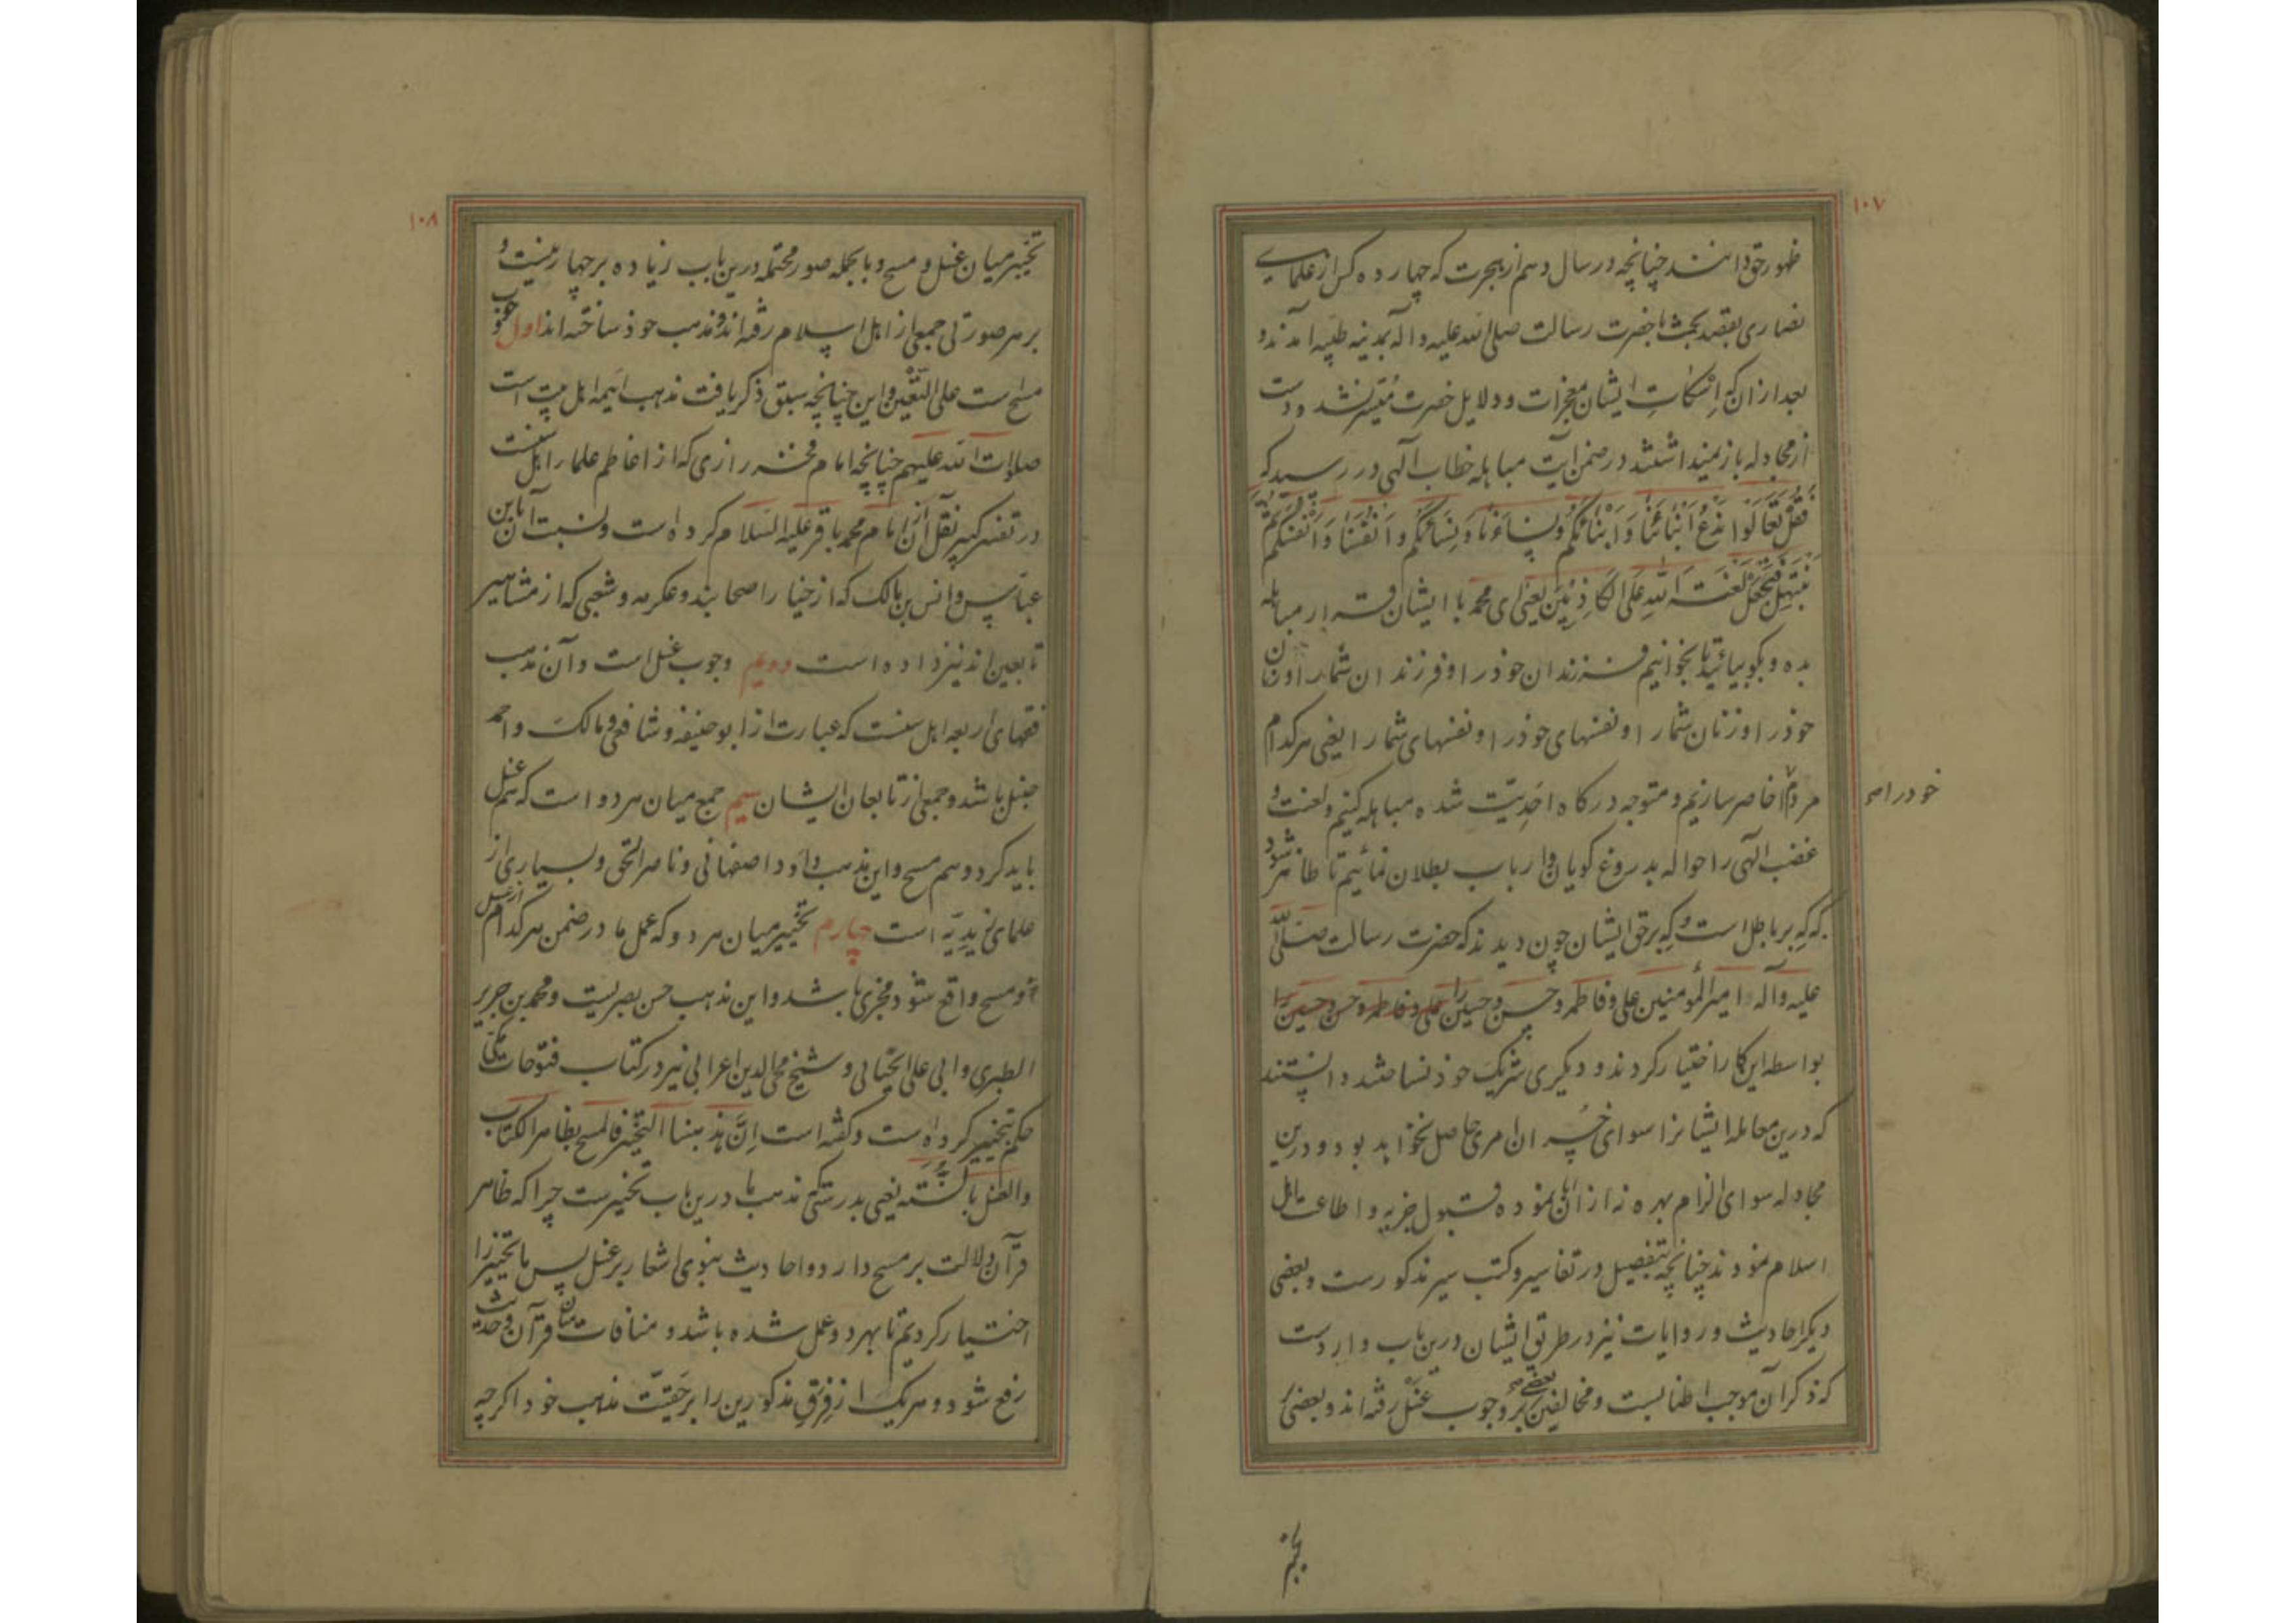 ۱۰۷
ظهور حق دانند چنانچه در سال دهم از هجرت که چهارده کس از علمای
نصاری بقصد بحث با حضرت رسالت صلی الله علیه و اله بمدینه طیبه آمدند و
بعد از ان که اسکات ایشان بمعجزات و دلایل حضرت متیسر نشد و دست
از مجادله باز نمیداشتند در ضمن آیت مباهله خطاب الهی در رسید که
فَقُلْ تَعَالَوْا نَدْعُ اَبْنَائَنَا وَ اَبْنَائَكُمْ وَ نِسَاءَنَا وَ نِسَائَكُمْ وَ اَنْفُسَنَا وَ اَنْفُسَكُمْ ثُمَّ
نَبْتَهِلْ فَنَجْعَلْ لَعْنَتَ اللّٰهِ عَلَی الْكَاذِبِیْنَ یعنی ای محمد با ایشان قرار مباهله
بده و بکو بیائید تا بخوانیم فرزندان خوذ را و فرزندان شما را و زنان
خوذ را و زنان شما را و نفسهای خوذ را و نفسهای شما را یعنی هر کدام
مردم خاصه سازیم و متوجه درکاه احدیّت شده مباهله کنیم و لعنت و
خود را صح
غضب الهی را حواله بدروغ کویان و ارباب بطلان نمائیم تا ظاهر شود
که کِه بر باطل است و کِه بر حق ایشان چون دیدند که حضرت رسالت صلی الله
علیه و آله امیر المؤمنین علی و فاطمه و حسن و حسین را علی و فاطمه و حسن و حسین را
بواسطه این کار اختیار کردند و دیکری شریک خوذ نساختند دانستند
که درین معامله ایشانرا سوای خسران امری حاصل نخواهد بود و درین
مجادله سوای الزام بهره نه از ان ابا نموده قبول جزیه و اطاعت اهل
اسلام نمودند چنانچه بتفصیل در تفاسیر و کتب سیر مذکورست و بعضی
دیکر احادیث و روایات نیز در طریق ایشان درین باب واردست
که ذکر آن موجب اطنابست و مخالفین بعضی بر وجوب غسل رفته اند و بعضی بر
تخیر
۱۰۸
تخییر میان غسل و مسح و بالجمله صور محتمله درین باب زیاده بر چهار نیست و
بر هر صورتی جمعی از اهل اسلام رفته اند و مذهب خوذ ساخته اند اول وجوب
مسح است علی التّعیین و این چنانچه سبق ذکر یافت مذهب ائیمه اهل بیت است
صلوات الله علیهم چنانچه امام فخر رازی که از اعاظم علما را اهل سنت
در تفسیر کبیر نقل آن از امام محمد باقر علیه السلام کرده است و نسبت آن با ابن
عباس و انس بن مالک که از خیار اصحابند و عکرمه و شعبی که از مشاهیر
تابعین اند نیز داده است دویم وجوب غسل است و آن مذهب
فقهای اربعه اهل سنت که عبارت از ابو حنیفه و شافعی و مالک و احمد
حنبل باشد و جمعی از تابعان ایشان سیم جمع میان هر دو است که هم غسل
باید کرد و هم مسح و این مذهب داود اصفهانی و ناصر الحق و بسیاری از
علمای زیدیّه است چهارم تخییر میان هر دو که عمل ما در ضمن هر کدام از غسل
و مسح واقع شود مجزی باشد و این مذهب حسن بصریست و محمد بن جریر
الطبری و ابی علی الجبائی و شیخ محی الدین اعرابی نیز در کتاب فتوحات مکی
حکم بتخییر کرده است و کفته است اِنَّ مذهبنا التخییر فالمسح بظاهر الکتاب
والغسل بالسُّنّته یعنی بدرستیکه مذهب ما درین باب تخییرست چرا که ظاهر
قرآن دلالت بر مسح دارد و احادیث نبوی اشعار بر غسل پس ما تخییر را
اختیار کردیم تا بهر دو عمل شده باشد و منافات میان قرآن و حدیث
رفع شود و هر یک از فِرَقِ مذکورین را بر حقیّت مذهب خود اکرچه